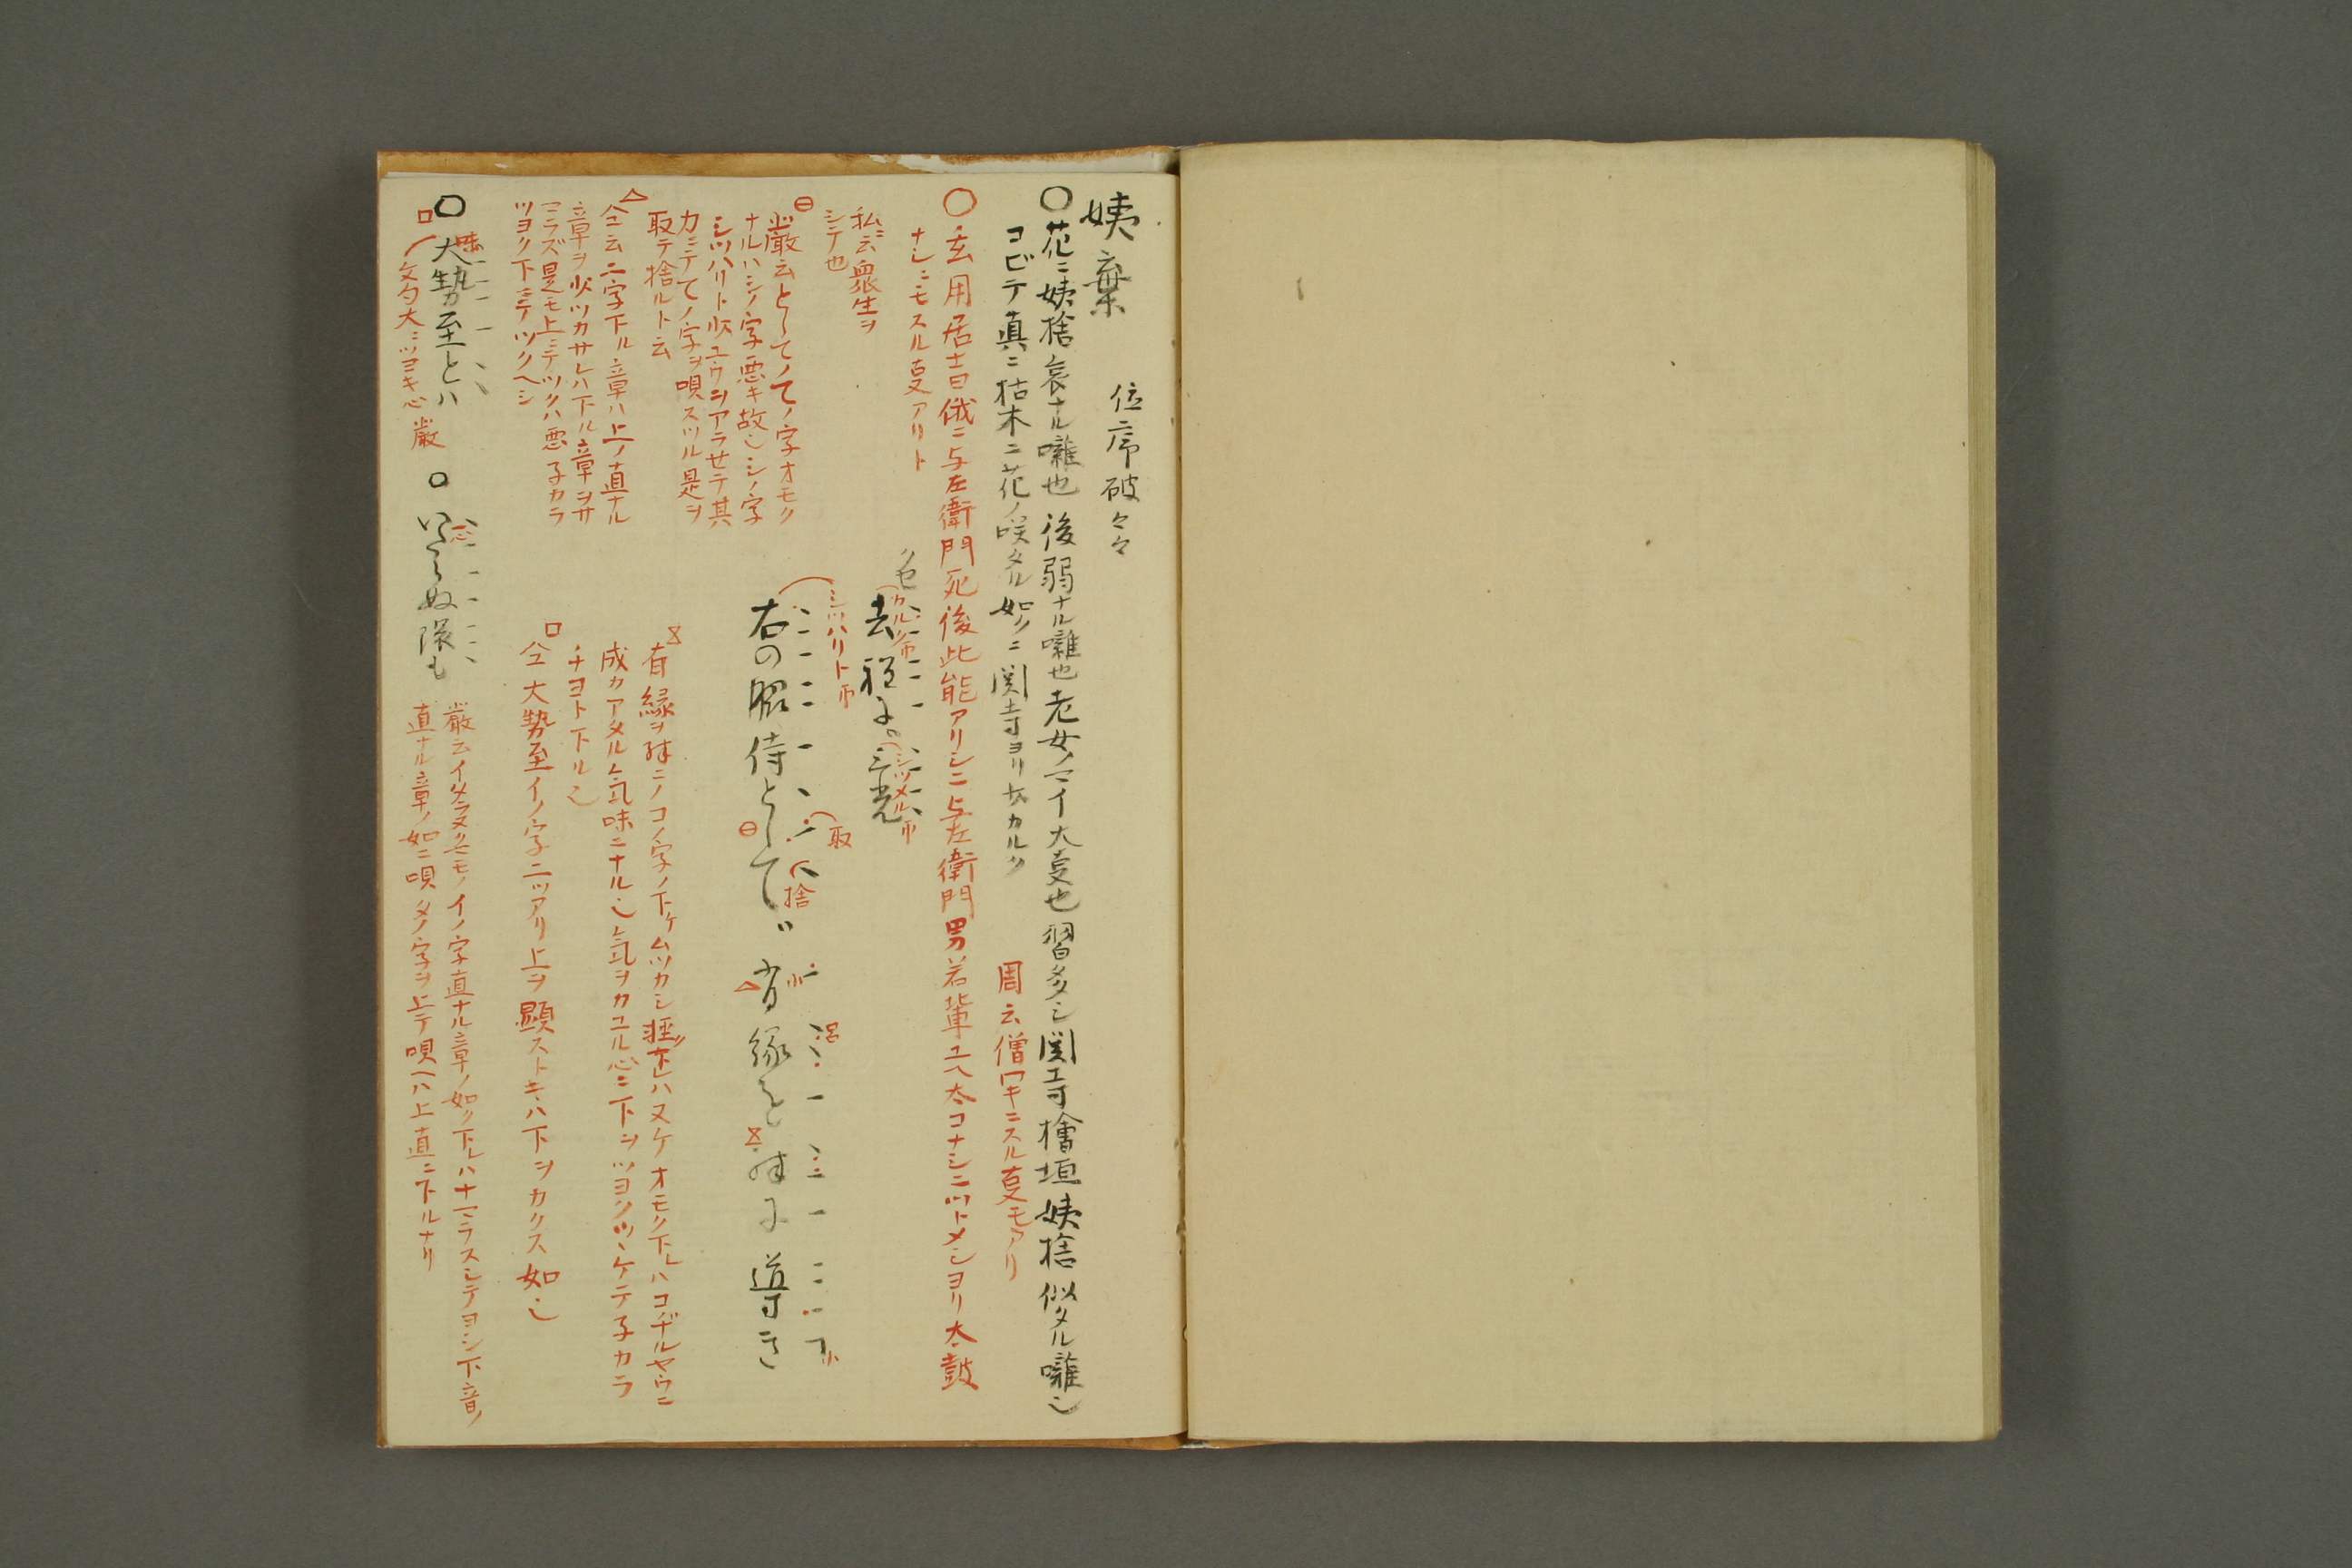 姨棄
位序破々々
〇花ニ姨捨哀ナル囃也 後弱ナル囃也老女ノマイ大事也習多シ関寺檜垣姨捨似タル囃也
コビテ真ニ枯木ニ花ノ咲タル如クニ関寺ヨリサカルク
周云僧ワキニスル事モアリ
〇玄用居士曰俄ニ与左衛門死後此能アリシニ与左衛門男若輩ユヘ太コナシニツトメシヨリ太鼓
ナシニモスル事アリト
私云衆生ヲ
シテ也
去程に。三光
シツハリト
右の脇侍として
取
捨
有縁を殊に導き
厳云としてノてノ字オモク
ナルハシノ字悪キ故也シノ字
シツハリト少ユウニアラセテ其
力ニテてノ字ヲ唄スツル是ヲ
取テ捨ルト云
有縁ヲ殊ニノコノ字ノ下ケムツカシ軽下レハ又ケオモク下レハコヂルヤウニ
成カアタル気味ニナル也気ヲカユル心ニ下ヲツヨクツヽケテ子カラ
チヨト下ル也
仝云二字下ル章ハ上ノ直ナル
章ヲ少ツカサレハ下ル章ヲサ
マラズ是モ上ニテツクハ悪子カラ
ツヨク下ニテツクヘシ
仝大勢至イノ字二ツアリ上ヲ顕ストキハ下ヲカクス如也
〇大勢至とハ
文句大ニツヨキ心 厳
〇いたらぬ隈も
厳云イタラヌクモノイノ字直ナル章ノ如ク下レハナマラスシテヨシ下音ノ
直ナル章ノ如ニ唄タノ字ヲ上テ唄ヘハ上直ニ下ルナリ